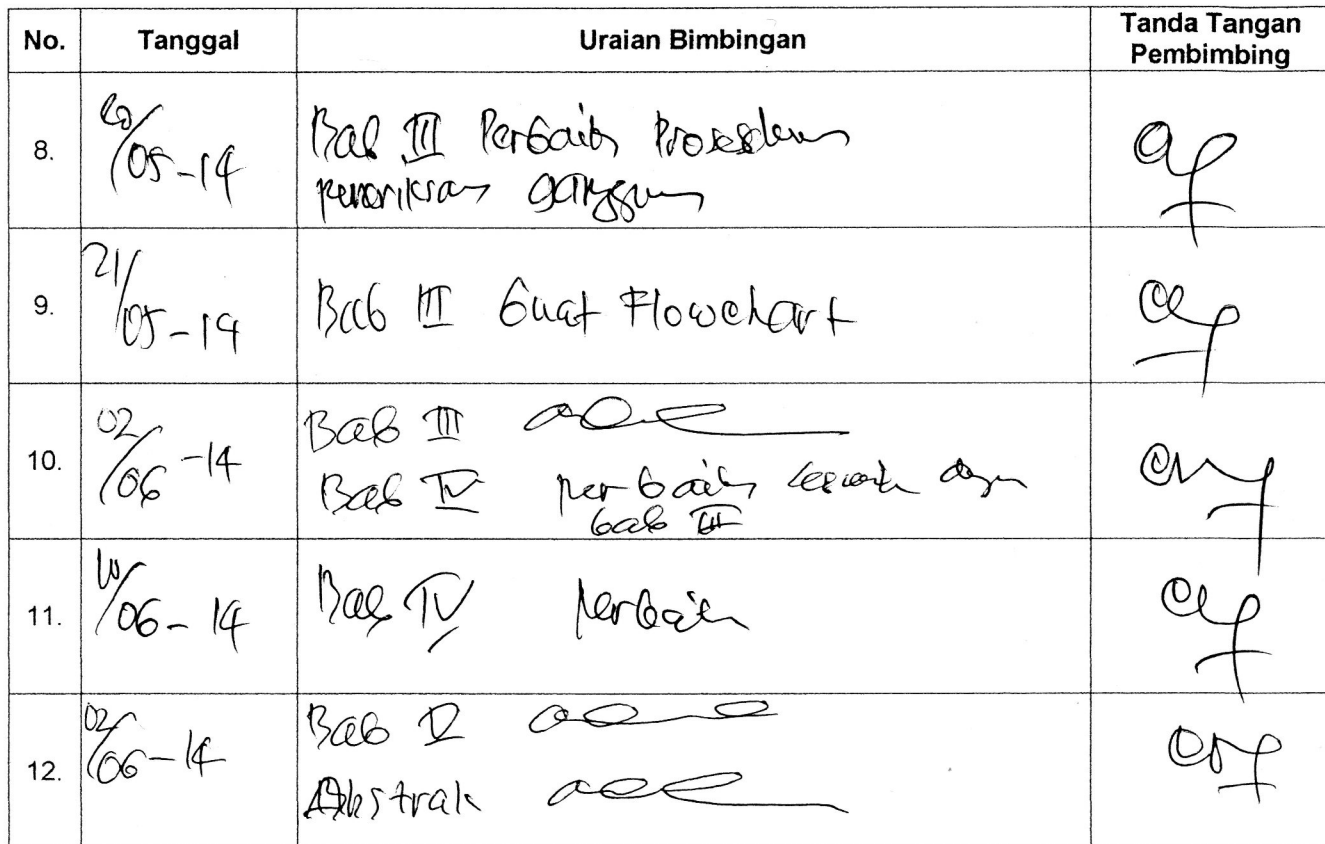 No. Tanggal Uraian Bimbingan Tanda Tangan Pembimbing
8. 20/05-14 Bab III Perbaiki Prosedur
pemeriksaan gangguan
9. 21/05-14 Bab III buat Flowchart
10. 02/06-14 Bab III
Bab IV perbaiki sesuai dgn
bab III
11. 10/06-14 Bab IV perbaiki
12. 02/06-14 Bab V
Abstrak